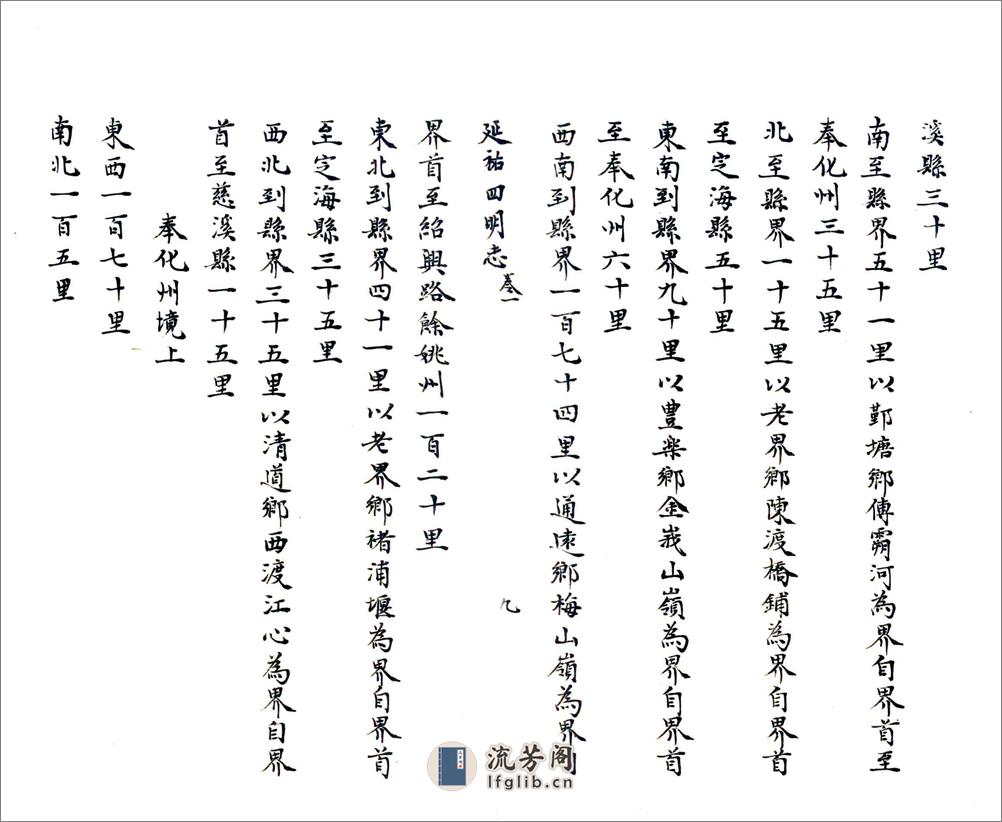 溪縣三十里
南至縣界五十一里以鄞塘鄉傅霸河為界自界首至
奉化州三十五里
北至縣界一十五里以老界鄉陳渡橋鋪為界自界首
至定海縣五十里
東南到縣界九十里以豊樂鄉金峩山嶺為界自界首
至奉化州六十里
西南到縣界一百七十四里以通逺鄉梅山嶺為界
延祐四明志 卷一 九
界首至紹興路餘姚州一百二十里
東北到縣界四十一里以老界鄉褚浦堰為界自界首
至定海縣三十五里
西北到縣界三十五里以清道鄉西渡江心為界自界
首至慈溪縣一十五里
奉化州境上
東西一百七十里
南北一百五里
流芳阁
lfglib.cn